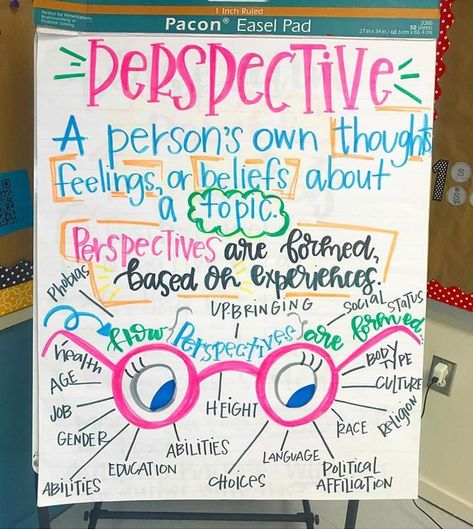 1 Inch Ruled
Perfect for Presentations,
Brainstorming or
Problem Solving
Pacon® Easel Pad
3386
50 sheets
27 in x 34 in / 68.6 cm x 86.4 cm
PERSPECTIVE
A person's own thoughts,
feelings, or beliefs about
a topic.
Perspectives are formed,
based on experiences.
Phobias
UPBRINGING
SOCIAL STATUS
How Perspectives are formed...
Health
AGE
JOB
GENDER
ABILITIES
EDUCATION
ABILITIES
HEIGHT
CHOICES
LANGUAGE
POLITICAL
AFFILIATION
RACE
Religion
CULTURE
BODY
TYPE
1